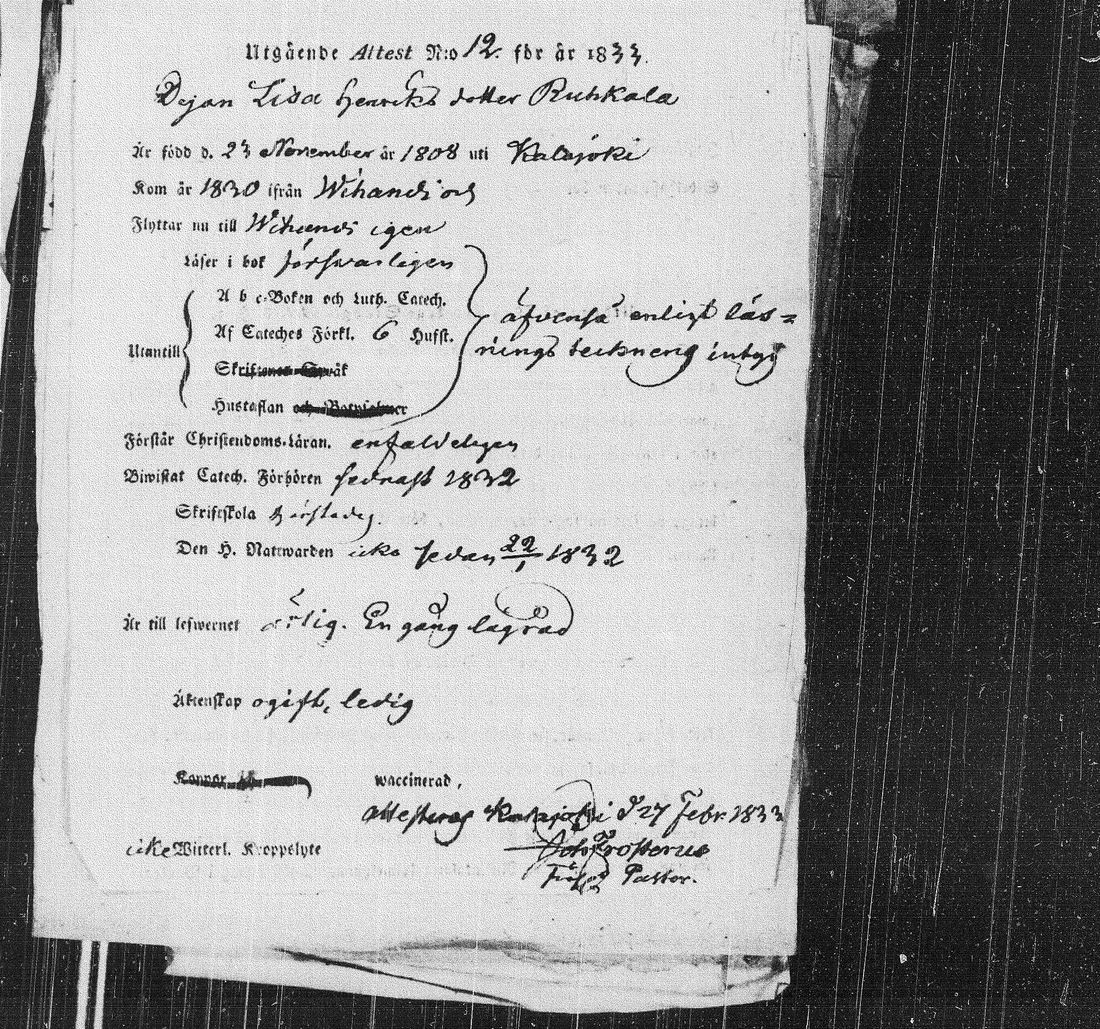 Utgående Attest N:o 12. för år 1833.
Pigan Lisa Henriksdotter Ruhkala
Är född d. 23 November år 1808 uti Kalajoki
Kom år 1830 ifrån Wihandi och
Flyttar nu till Wihandi igen
Läser i bok försvarligen
A b c-Boken och Luth. Catech.
Af Cateches Förkl. 6 Hufst.
äfvenså enligt läs=
nings teckneng intyg
Utantill
Hustaflan
Förstår Christendoms-Läran. enfaldeligen
Biwistat Catech. Förhören sednast 1832
Skriftskola
Den H. Nattwarden icke sedan 22/1 1832
Är till lefwernet ärlig. En gång lägrad
Äktenskap ogift, ledig
waccinerad,
attesteras Kalajoki d 27 Febr. 1833
icke Witterl. Kroppslyte
Frosterus
Pastor.